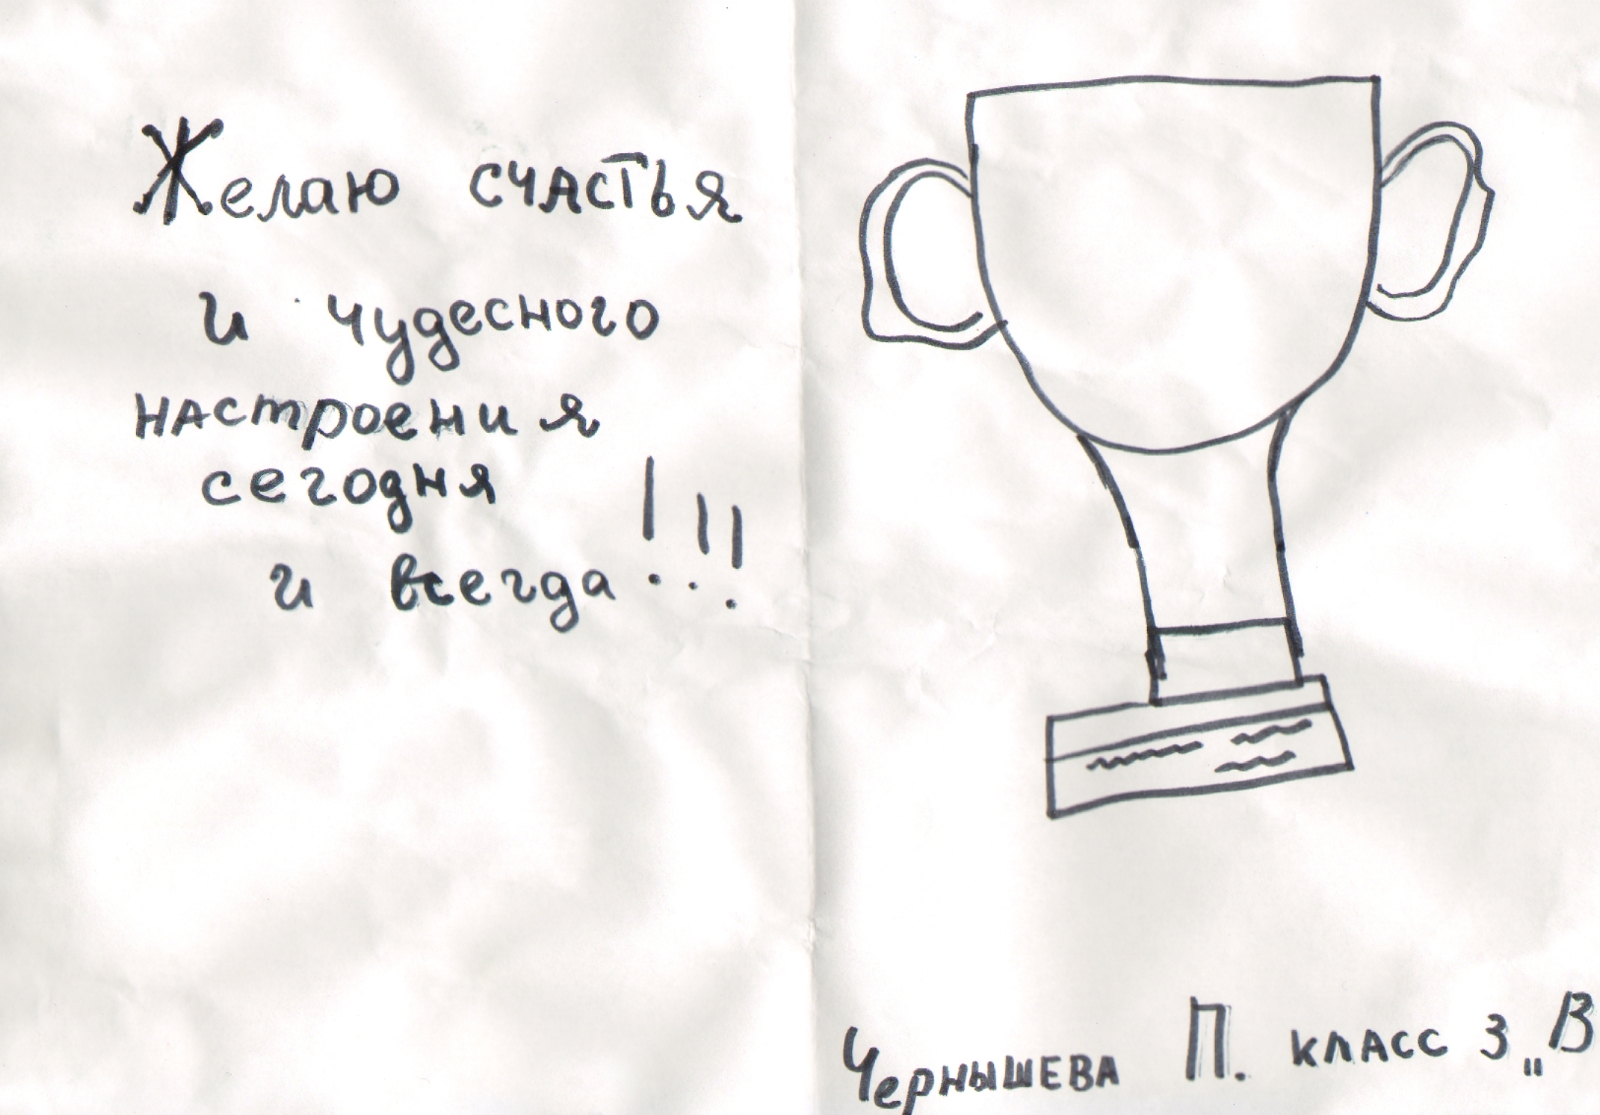 Желаю счастья
и чудесного
настроения
сегодня
и всегда!!!
Чернышева П. класс 3 „В